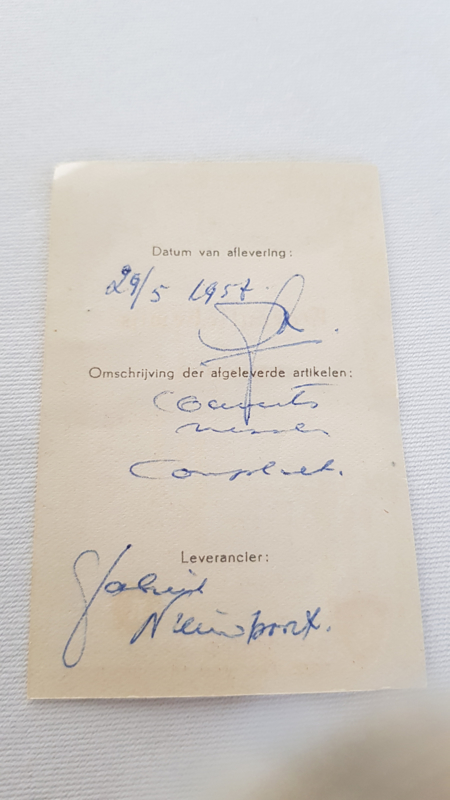 Datum van aflevering:
29/5 1957.
Omschrijving der afgeleverde artikelen:
Couverts
messen
Compleet.
Leverancier:
Nieuwpoort.